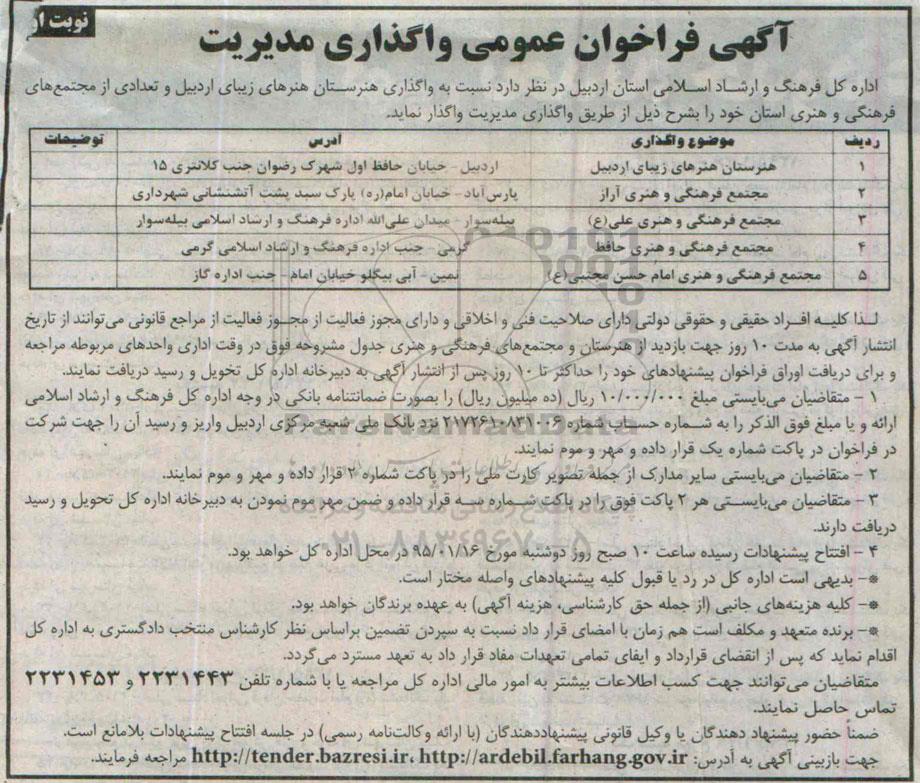 نوبت او
آگهی فراخوان عمومی واگذاری مدیریت
اداره کل فرهنگ و ارشاد اسلامی استان اردبیل در نظر دارد نسبت به واگذاری هنرستان هنرهای زیبای اردبیل و تعدادی از مجتمع‌های
فرهنگی و هنری استان خود را بشرح ذیل از طریق واگذاری مدیریت واگذار نماید.
ردیف موضوع واگذاری آدرس توضیحات
۱ هنرستان هنرهای زیبای اردبیل اردبیل - خیابان حافظ اول شهرک رضوان جنب کلانتری ۱۵
۲ مجتمع فرهنگی و هنری آراز پارس‌آباد- خیابان امام(ره) پارک سبد پشت آتشنشانی شهرداری
۳ مجتمع فرهنگی و هنری علی(ع) بیله‌سوار- میدان علی‌الله اداره فرهنگ و ارشاد اسلامی بیله‌سوار
۴ مجتمع فرهنگی و هنری حافظ گرمی- جنب اداره فرهنگ و ارشاد اسلامی گرمی
۵ مجتمع فرهنگی و هنری امام حسن مجتبی(ع) نمین- آبی بیگلو خیابان امام جنب اداره گاز
لذا کلیه افراد حقیقی و حقوقی دولتی دارای صلاحیت فنی و اخلاقی و دارای مجوز فعالیت از مجوز فعالیت از مراجع قانونی می‌توانند از تاریخ
انتشار آگهی به مدت ۱۰ روز جهت بازدید از هنرستان و مجتمع‌های فرهنگی و هنری جدول مشروحه فوق در وقت اداری واحدهای مربوطه مراجعه
و برای دریافت اوراق فراخوان پیشنهادهای خود را حداکثر تا ۱۰ روز پس از انتشار آگهی به دبیرخانه اداره کل تحویل و رسید دریافت نمایند.
۱ - متقاضیان می‌بایستی مبلغ ۱۰/۰۰۰/۰۰۰ ریال (ده میلیون ریال) را بصورت ضمانتنامه بانکی در وجه اداره کل فرهنگ و ارشاد اسلامی
ارائه و یا مبلغ فوق الذکر را به شماره حساب شماره ۲۱۷۲۶۱۰۸۳۱۰۰۶ نزد بانک ملی شعبه مرکزی اردبیل واریز و رسید آن را جهت شرکت
در فراخوان در پاکت شماره یک قرار داده و مهر و موم نمایند.
۲ - متقاضیان می‌بایستی سایر مدارک از جمله تصویر کارت ملی را در پاکت شماره ۲ قرار داده و مهر و موم نمایند.
۳ - متقاضیان می‌بایستی هر ۲ پاکت فوق را در پاکت شماره سه قرار داده و ضمن مهر موم نمودن به دبیرخانه اداره کل تحویل و رسید
دریافت دارند.
۴ - افتتاح پیشنهادات رسیده ساعت ۱۰ صبح روز دوشنبه مورخ ۹۵/۰۱/۱۶ در محل اداره کل خواهد بود.
*- بدیهی است اداره کل در رد یا قبول کلیه پیشنهادهای واصله مختار است.
*- کلیه هزینه‌های جانبی (از جمله حق کارشناسی، هزینه آگهی) به عهده برندگان خواهد بود.
*- برنده متعهد و مکلف است هم زمان با امضای قرار داد نسبت به سپردن تضمین براساس نظر کارشناس منتخب دادگستری به اداره کل
اقدام نماید که پس از انقضای قرارداد و ایفای تمامی تعهدات مفاد قرار داد به تعهد مسترد می‌گردد.
متقاضیان می‌توانند جهت کسب اطلاعات بیشتر به امور مالی اداره کل مراجعه یا با شماره تلفن ۲۲۳۱۴۴۳ و ۲۲۳۱۴۵۳
تماس حاصل نمایند.
ضمناً حضور پیشنهاد دهندگان یا وکیل قانونی پیشنهاددهندگان (با ارائه وکالت‌نامه رسمی) در جلسه افتتاح پیشنهادات بلامانع است.
جهت بازبینی آگهی به آدرس: http://tender.bazresi.ir، http://ardebil.farhang.gov.ir مراجعه فرمایند.
ParsNamadData
۰۲۱-۸۸۳۴۹۶۷۰-۵